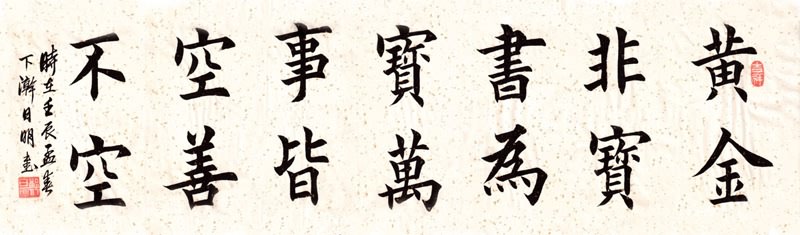 黄金
非寶
書為
寶萬
事皆
空善
不空
時在壬辰孟春
下澣日明書